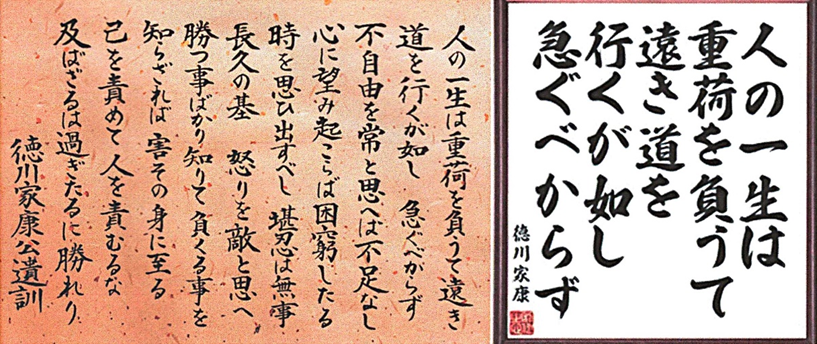 人の一生は重荷を負うて遠き
道を行くが如し 急ぐべからず
不自由を常と思へば不足なし
心に望み起こらば困窮したる
時を思ひ出すべし 堪忍は無事
長久の基 怒りを敵と思へ
勝つ事ばかり知りて負くる事を
知らざれば 害その身に至る
己を責めて人を責むるな
及ばざるは過ぎたるに勝れり
徳川家康公遺訓
人の一生は
重荷を負うて
遠き道を
行くが如し
急ぐべからず
徳川家康